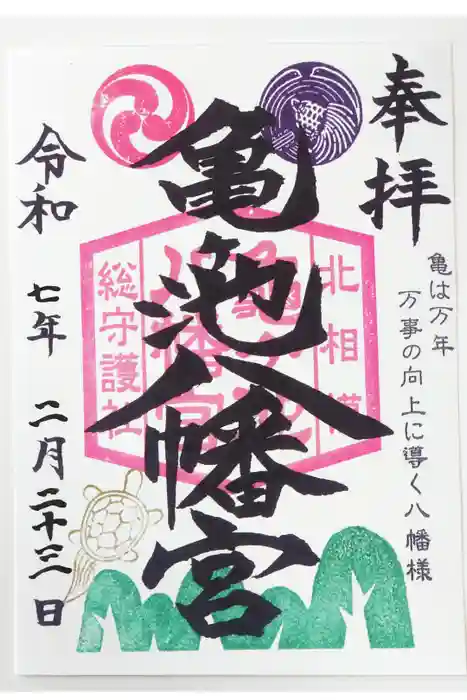 奉拝
亀は万年
万事の向上に導く八幡様
亀池八幡宮
北相模
亀ヶ池
八幡宮
総守護社
令和
七年
二月二十三日